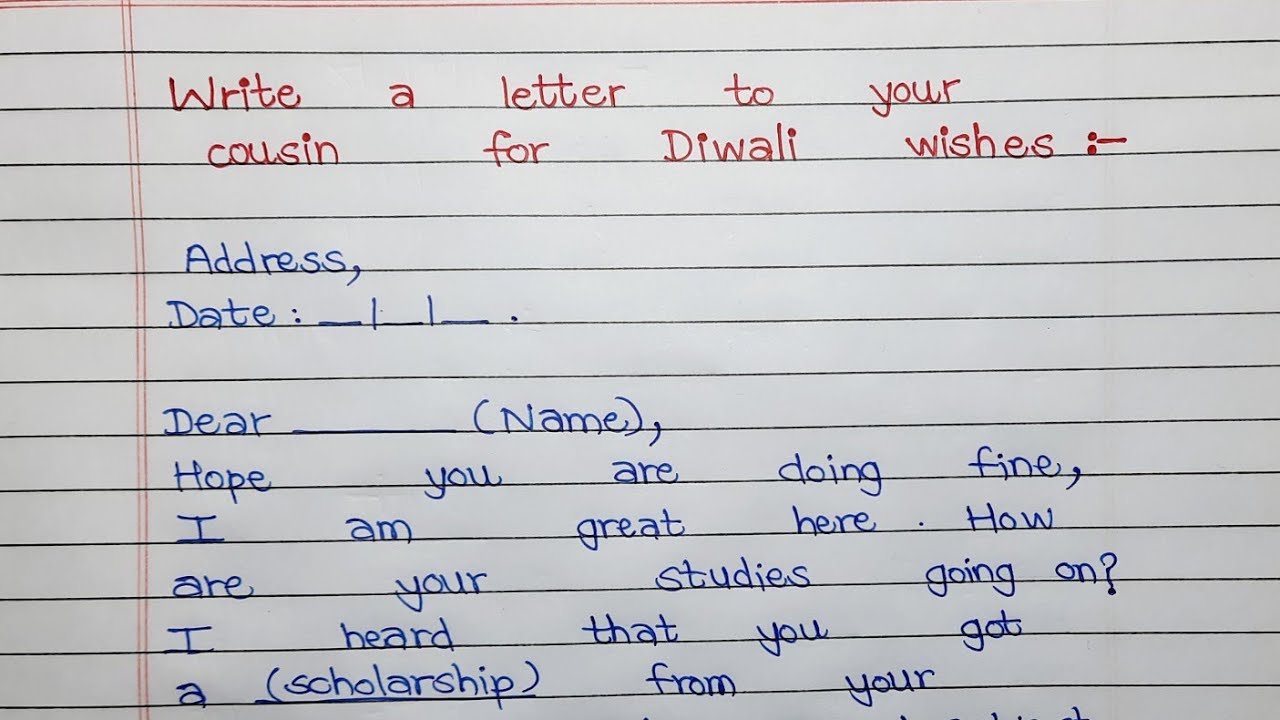 Write a letter to your
cousin for Diwali wishes :-
Address,
Date : __/__/__ .
Dear ______ (Name),
Hope you are doing fine,
I am great here . How
are your studies going on?
I heard that you got
a (scholarship) from your